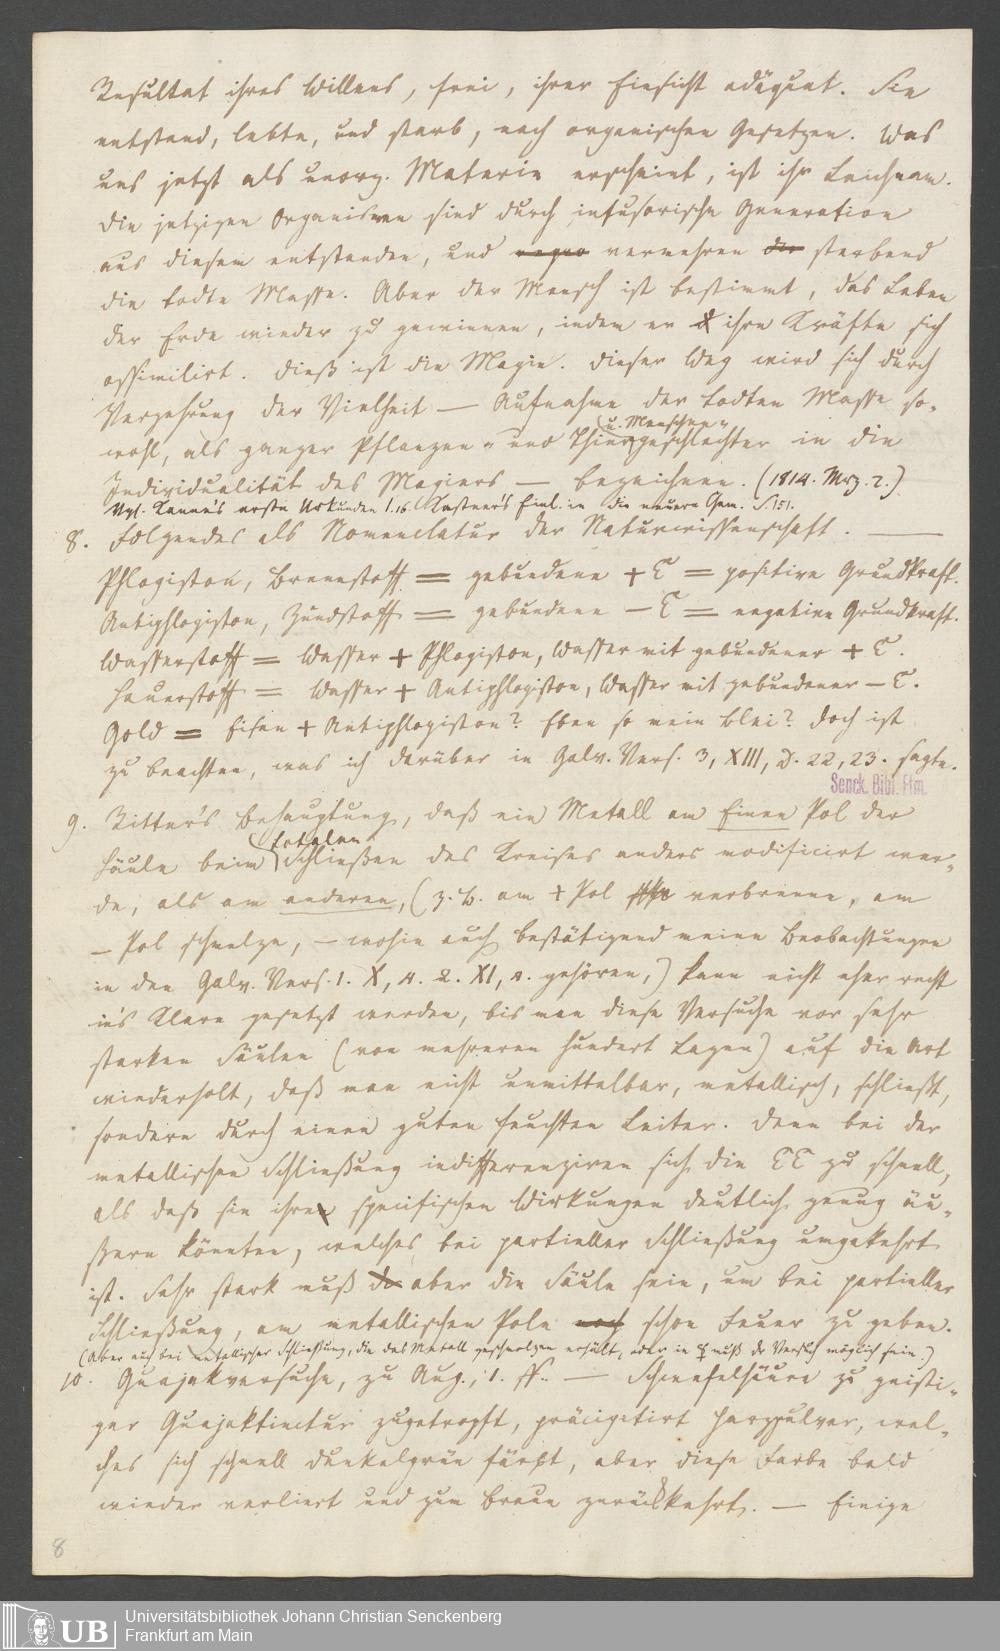 Resultat ihres Willens, frei, ihrer Einsicht adäquat. Sie
entstand, lebte, und starb, nach organischen Gesetzen. Was
uns jetzt als unorg. Materie erscheint, ist ihr Leichnam.
Die jetzigen Organismen sind durch infusorische Generation
aus diesem entstanden, und vermehren sterbend
die todte Masse. Aber der Mensch ist bestimmt, das Leben
der Erde wieder zu gewinnen, indem er ihre Kräfte sich
assimilirt. Dieß ist die Magie. Dieser Weg wird sich durch
Verzehrung der Vielheit — Aufnahme der todten Masse so-
wohl, als ganzer Pflanzen- und Thier- u. Menschen-geschlechter in die
Individualität des Magiers — bezeichnen. (1814. Mrz. 2.)
Vgl. Kanne's erste Urkunden 1.16. Kastner's Einl. in die neuere Chem. S. 151.
8. Folgendes als Nomenclatur der Naturwissenschaft. —
Phlogiston, Brennstoff = gebundene + E = positive Grundkraft.
Antiphlogiston, Zündstoff = gebundene – E = negative Grundkraft.
Wasserstoff = Wasser + Phlogiston, Wasser mit gebundener + E.
Sauerstoff = Wasser + Antiphlogiston, Wasser mit gebundener – E.
Gold = Eisen + Antiphlogiston? Eben so mein Blei? Doch ist
zu beachten, was ich darüber in Galv. Vers. 3, XIII, D. 22, 23. sagte.
Senck. Bibl. Ffm.
9. Ritter's Behauptung, daß ein Metall am Einen Pol der
Säule beim totalen Schließen des Kreises anders modificirt wer-
de, als am anderen, (z. B. am + Pol verbrenne, am
– Pol schmelze, — wohin auch bestätigend meine Beobachtungen
in den Galv. Vers. 1. X, A. 2. XI, A. gehören,) kann nicht eher recht
in's Klare gesetzt werden, bis man diese Versuche vor sehr
starken Säulen (von mehreren hundert Lagen) auf die Art
wiederholt, daß man nicht unmittelbar, metallisch, schließt,
sondern durch einen guten feuchten Leiter. Denn bei der
metallischen Schließung indifferenziren sich die EE zu schnell,
als daß sie ihre specifischen Wirkungen deutlich genug äu-
ßern könnten, welches bei partieller Schließung umgekehrt
ist. Sehr stark muß aber die Säule sein, um bei partieller
Schließung, am metallischen Pole schon Feuer zu geben.
(Aber auch bei metallischer Schließung, die das Metall geschmolzen erhält, oder in ☿ muß dr Versuch möglich sein.)
10. Guajakversuche, zu Aug., 1. ff. — Schwefelsäure zu geisti-
ger Guajaktinctur zugetropft, präcipitirt Harzpulver, wel-
ches sich schnell dunkelgrün färbt, aber diese Farbe bald
wieder verliert und zum Braun zurückkehrt. — Einige
8
UB Universitätsbibliothek Johann Christian Senckenberg
Frankfurt am Main